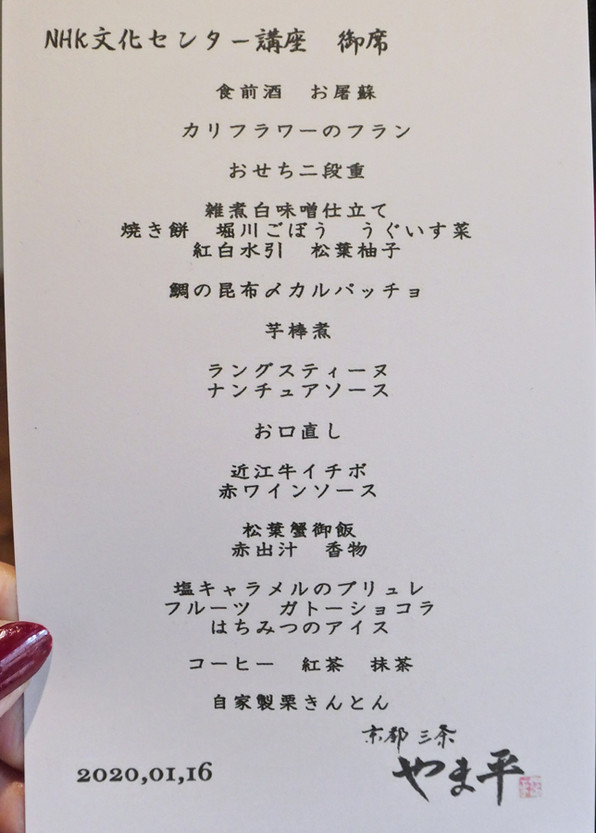 NHK文化センター講座　御席
食前酒　お屠蘇
カリフラワーのフラン
おせち二段重
雑煮白味噌仕立て
焼き餅　堀川ごぼう　うぐいす菜
紅白水引　松葉柚子
鯛の昆布〆カルパッチョ
芋棒煮
ラングスティーヌ
ナンチュアソース
お口直し
近江牛イチボ
赤ワインソース
松葉蟹御飯
赤出汁　香物
塩キャラメルのブリュレ
フルーツ　ガトーショコラ
はちみつのアイス
コーヒー　紅茶　抹茶
自家製栗きんとん
京都 三条
やま平
2020,01,16